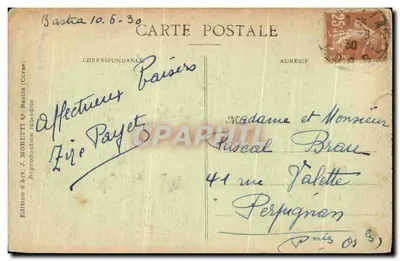 Bastia 10.6-30
CARTE POSTALE
CORRESPONDANCE
ADRESSE
Affectueux baisers
Zize Payet
Madame et Monsieur
Pascal Brau
41 rue Valette
Perpignan
(Pnés Or les)
Edition d'Art J. MORETTI Bastia (Corse)
Reproduction interdite
CPAPHIL
25